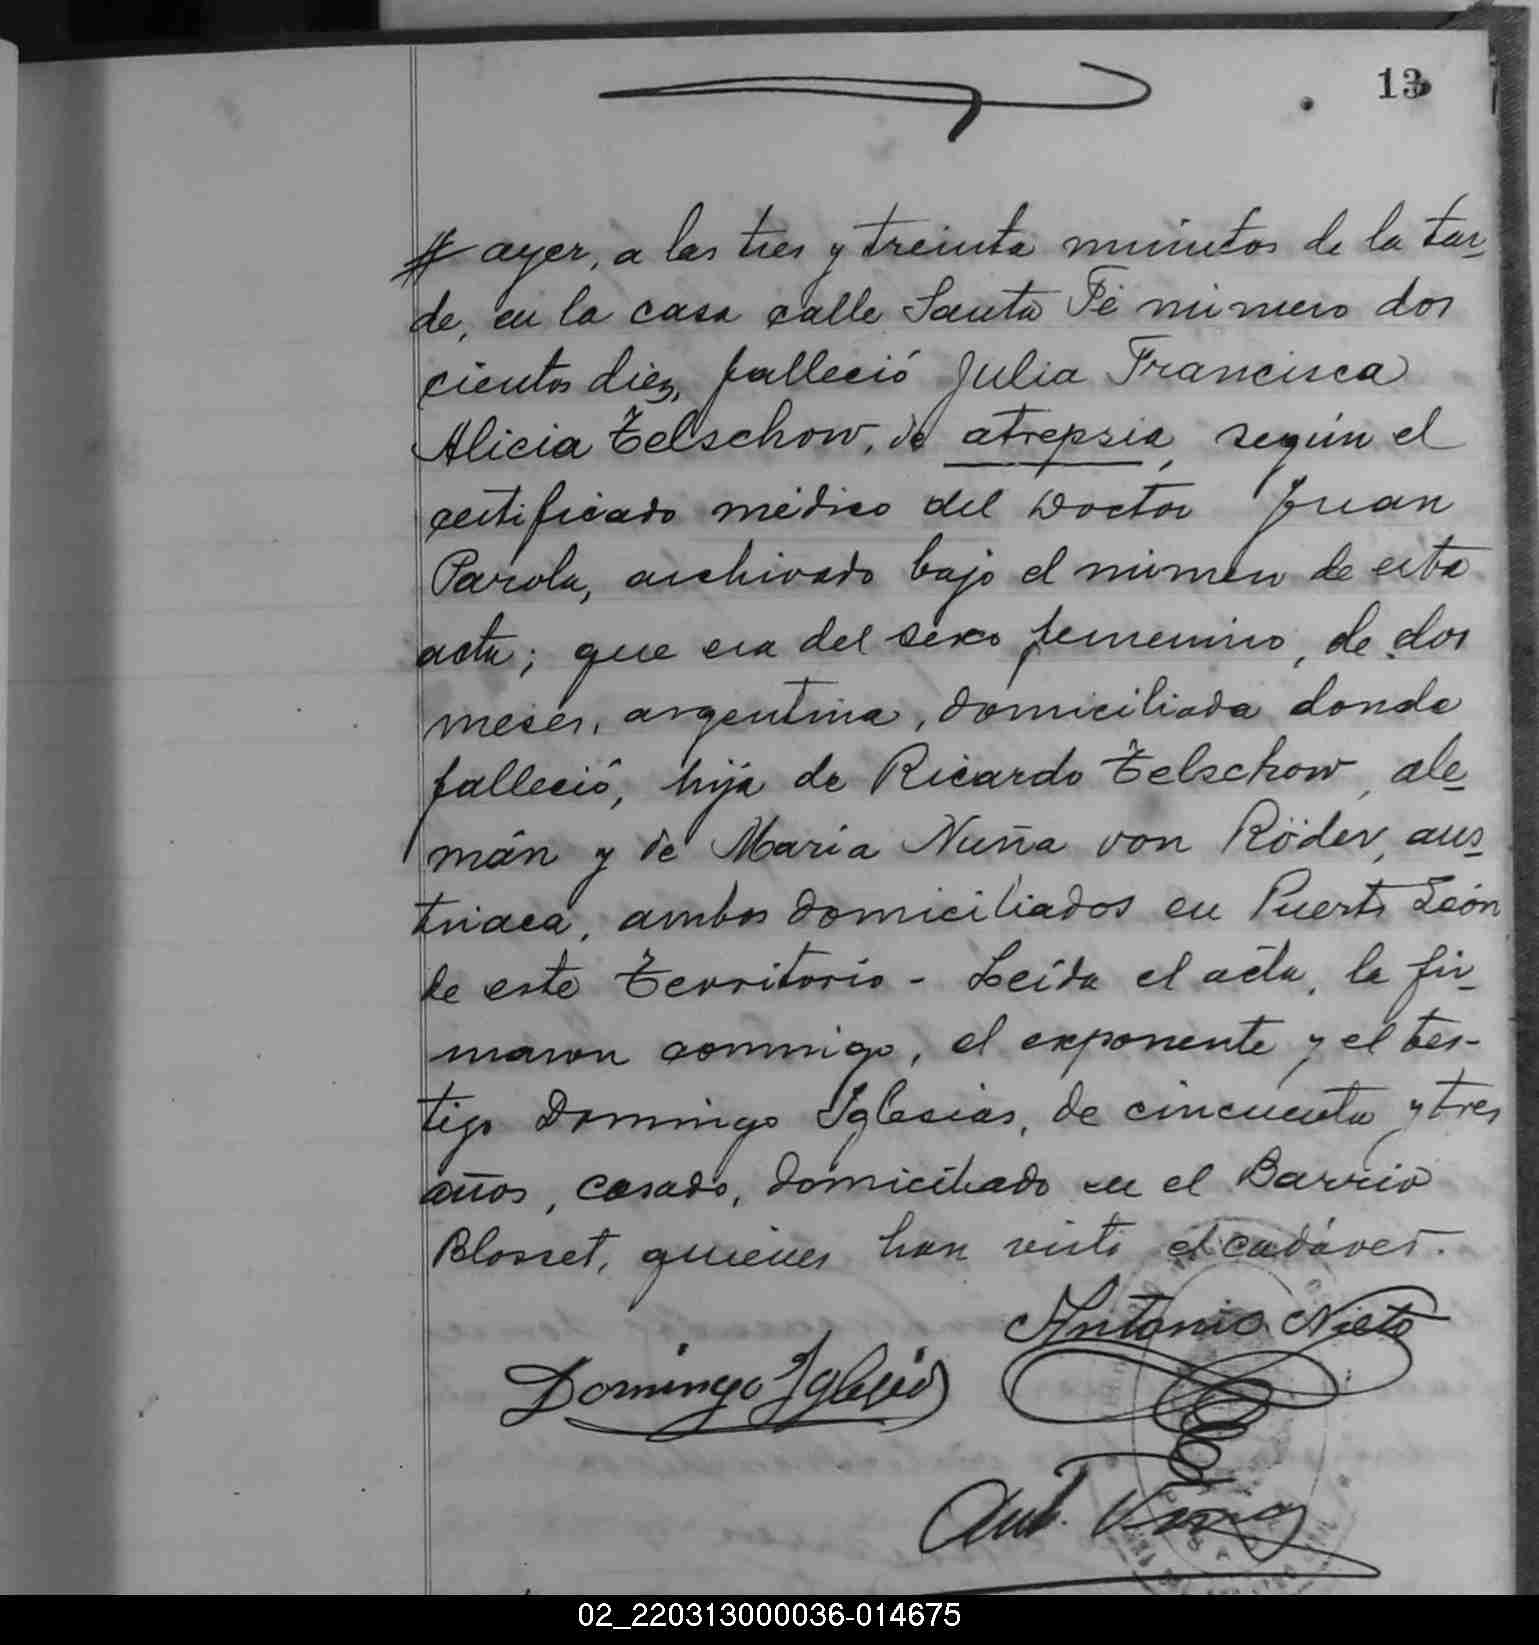 13
ayer, a las tres y treinta minutos de la tar-
de, en la casa calle Santa Fé número dos
cientos diez, falleció Julia Francisca
Alicia Telschow, de atrepsia, según el
certificado médico del Doctor Juan
Parola, archivado bajo el número de esta
acta; que era del sexo femenino, de dos
meses, argentina, domiciliada donde
falleció, hija de Ricardo Telschow, ale-
mán y de María Nuña von Röder, aus-
triaca, ambos domiciliados en Puerto León
de este Territorio - Leída el acta, la fir-
maron conmigo, el exponente y el tes-
tigo Domingo Iglesias, de cincuenta y tres
años, casado, domiciliado en el Barrio
Blosset, quienes han visto el cadáver.
Antonio Nieto
Domingo Iglesias
Ant.
02_220313000036-014675